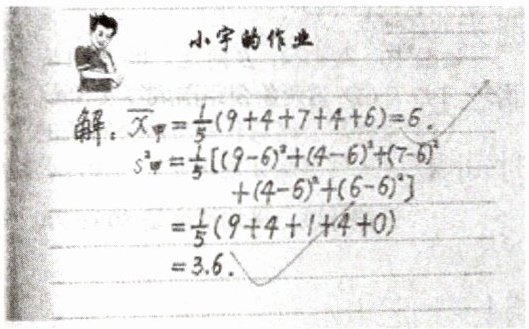 小宇的作业
解：x̄甲=1/5(9+4+7+4+6)=6.
s²甲=1/5[(9-6)²+(4-6)²+(7-6)²
+(4-6)²+(6-6)²]
=1/5(9+4+1+4+0)
=3.6.